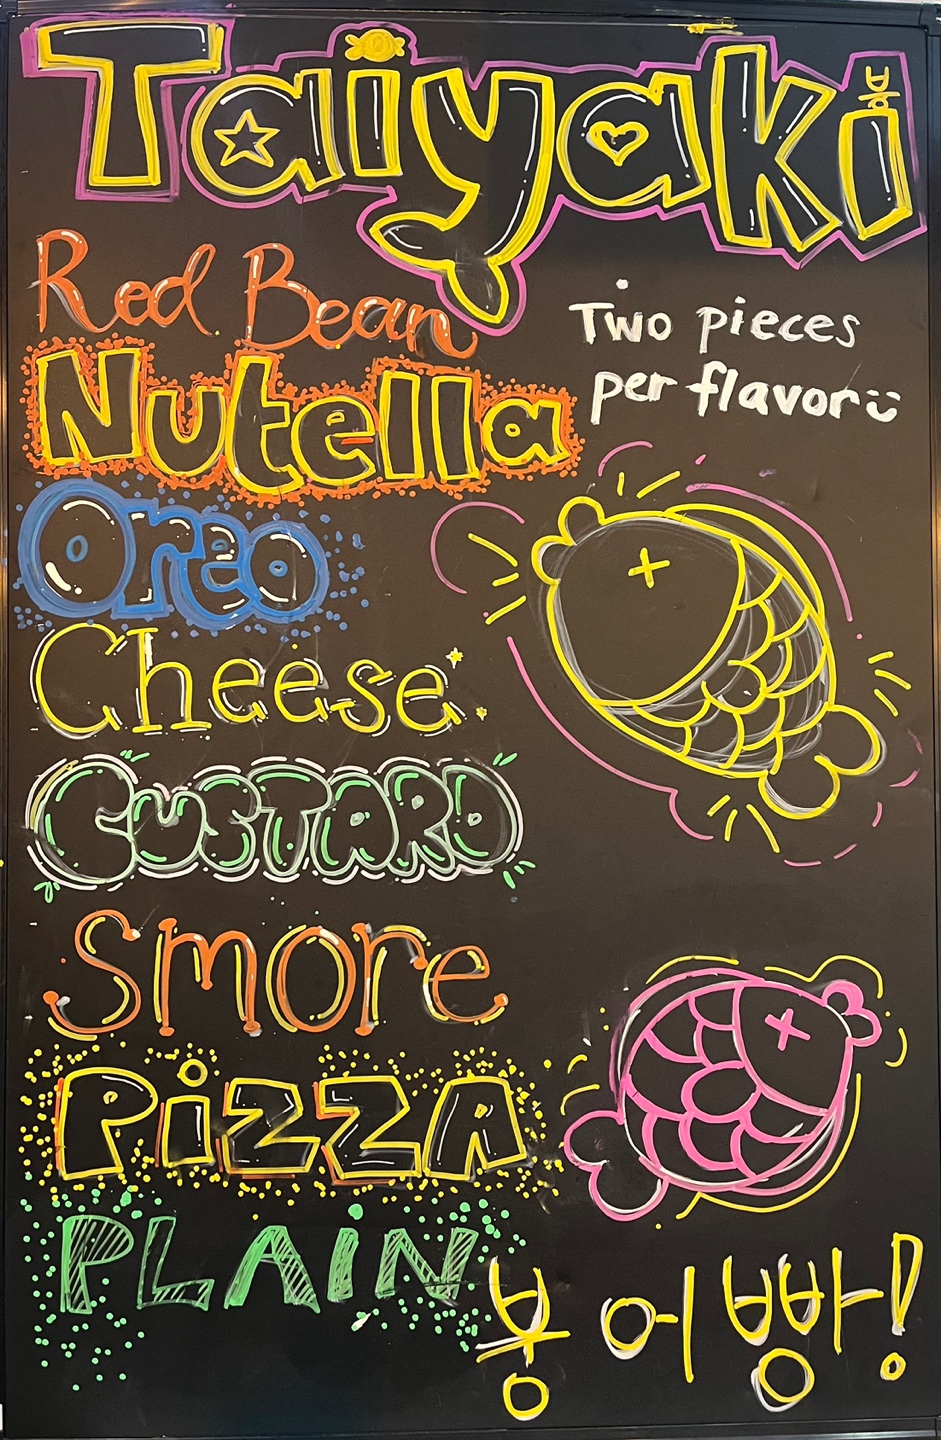 Taiyaki
Red Bean
Two pieces
per flavor
Nutella
Oreo
Cheese
CUSTARD
Smore
PiZZA
PLAiN
붕어빵!